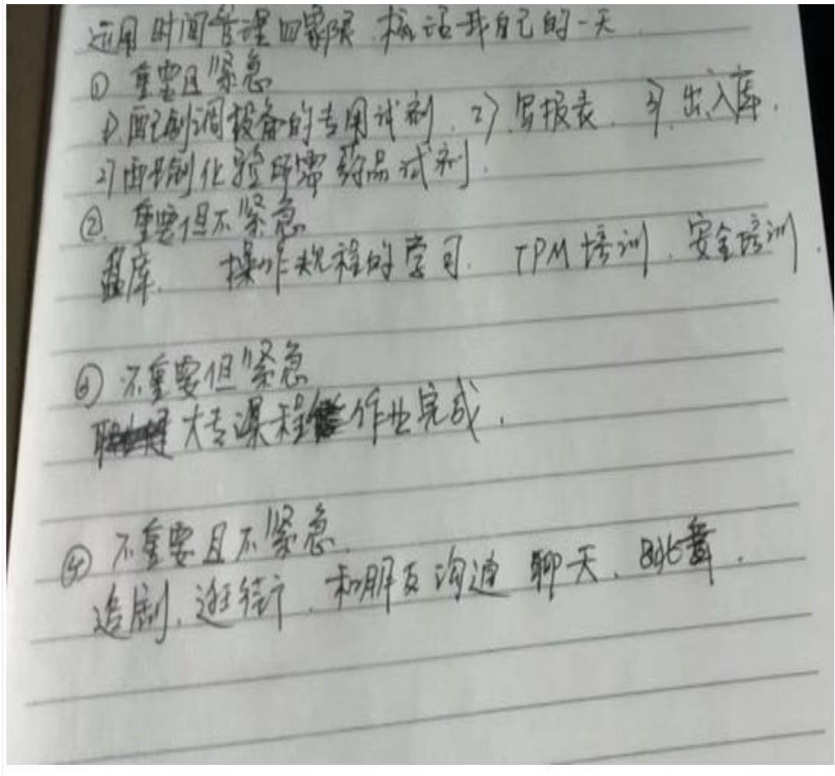 运用时间管理四象限 概话我自己的一天
① 重要且紧急
1) 配制调设备的专用试剂. 2) 写报表. 3) 出入库.
2) 配制化验所需药品试剂.
②. 重要但不紧急
盘库. 操作规程的学习. TPM培训. 安全培训.
③ 不重要但紧急
大专课程作业完成.
④ 不重要且不紧急.
追剧. 逛街. 和朋友沟通 聊天.